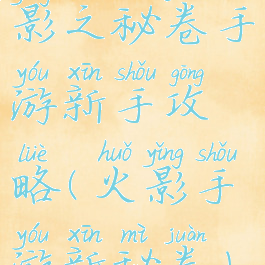 影之秘卷手
yóu xīn shǒu gōng
游新手攻
lüè huǒ yǐng shǒu
略(火影手
yóu xīn mì juàn
游新秘卷)